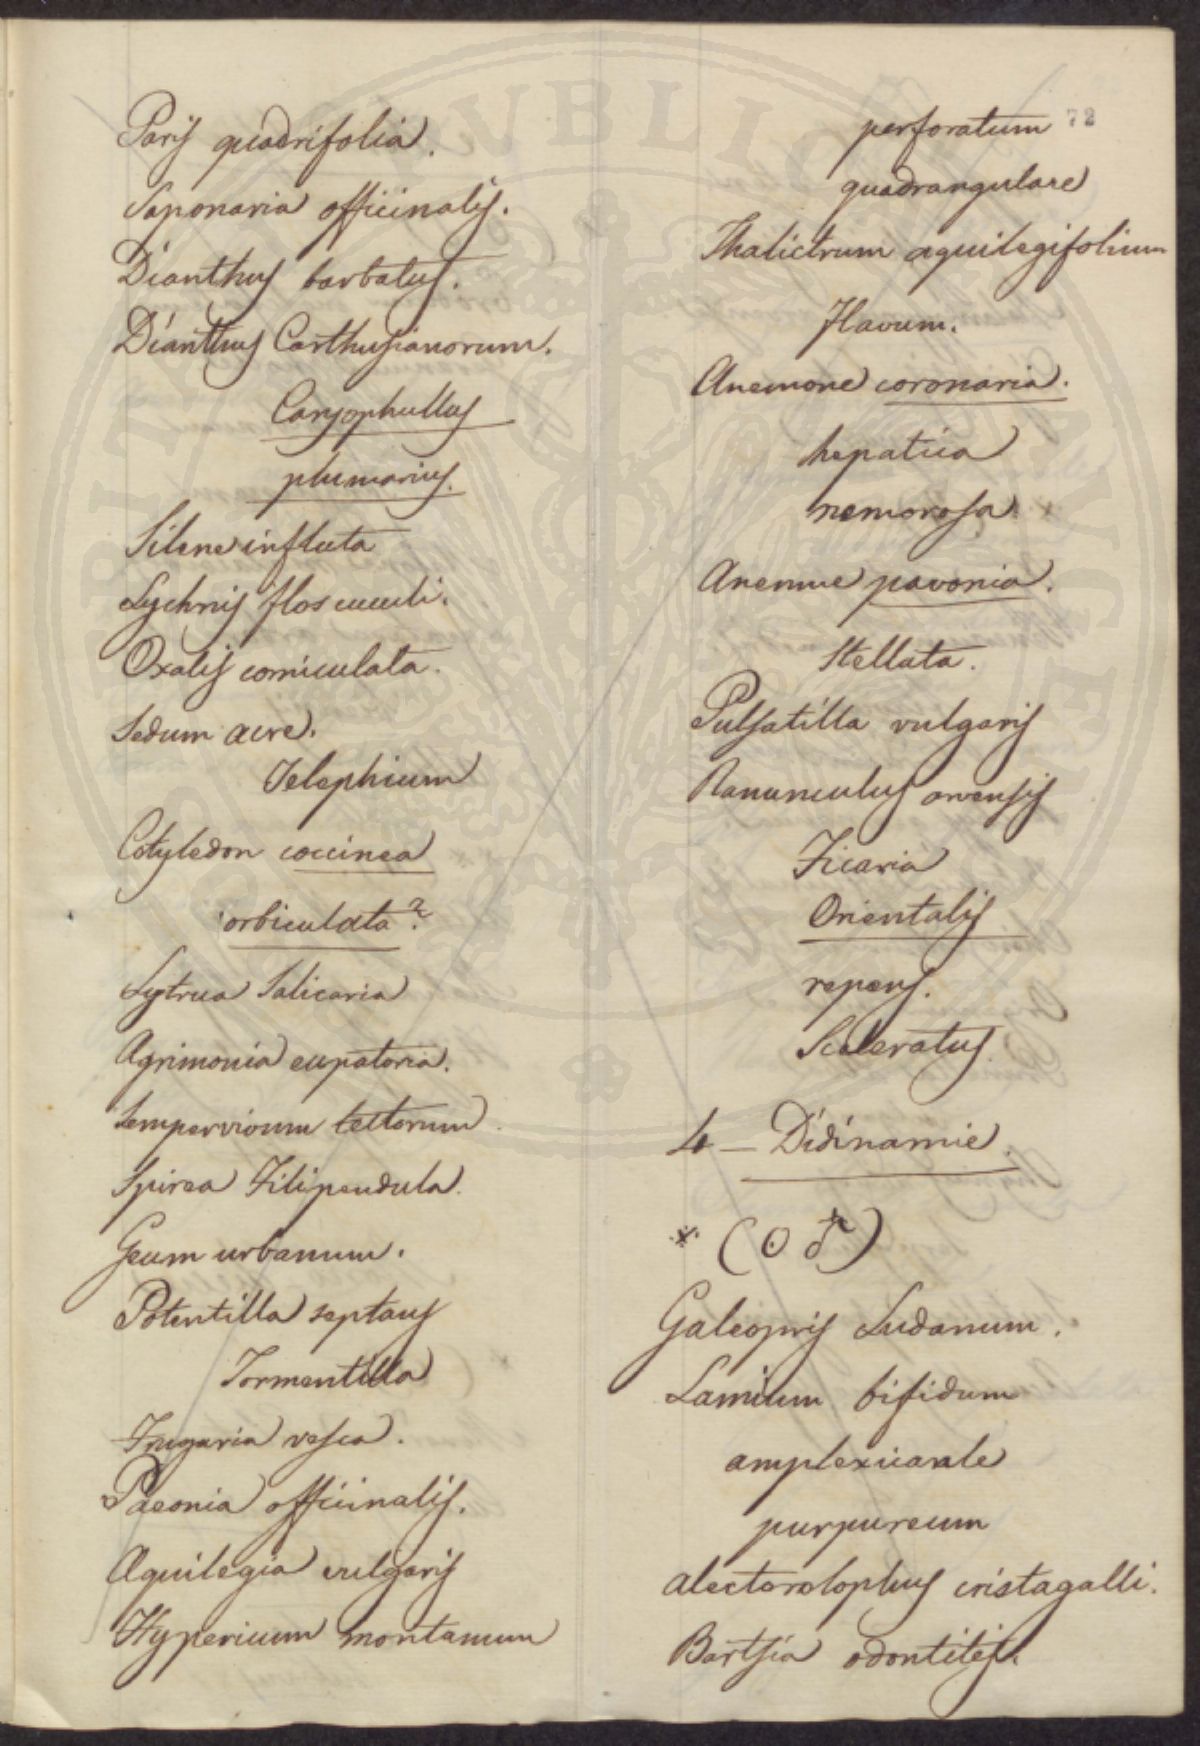 Paris quadrifolia.
Saponaria officinalis.
Dianthus barbatus.
Dianthus Carthusianorum.
Caryophullus
plumarius.
Silene inflata
Lychnis flos cuculi.
Oxalis corniculata.
Sedum acre.
Telephium
Cotyledon coccinea
orbiculata?
Lytrua Salicaria
Agrimonia eupatoria.
Sempervivum tectorum.
Spirea Filipendula.
Geum urbanum.
Potentilla reptans
Tormentilla
Fragaria vesca.
Paeonia officinalis.
Aquilegia vulgaris
Hypericum montanum
72
perforatum
quadrangulare
Thalictrum aquilegifolium
flavum.
Anemone coronaria.
hepatica
nemorosa
Anemne pavonia.
Stellata.
Pulsatilla vulgaris
Ranunculus arvensis
Ficaria
Orientalis
repens.
Sceleratus.
4 — Didinamie.
* (⊙ ♂)
Galeopsis Ludanum.
Lamium bifidum
amplexicaule
purpureum
Alectorolophus cristagalli.
Bartsia odontites.